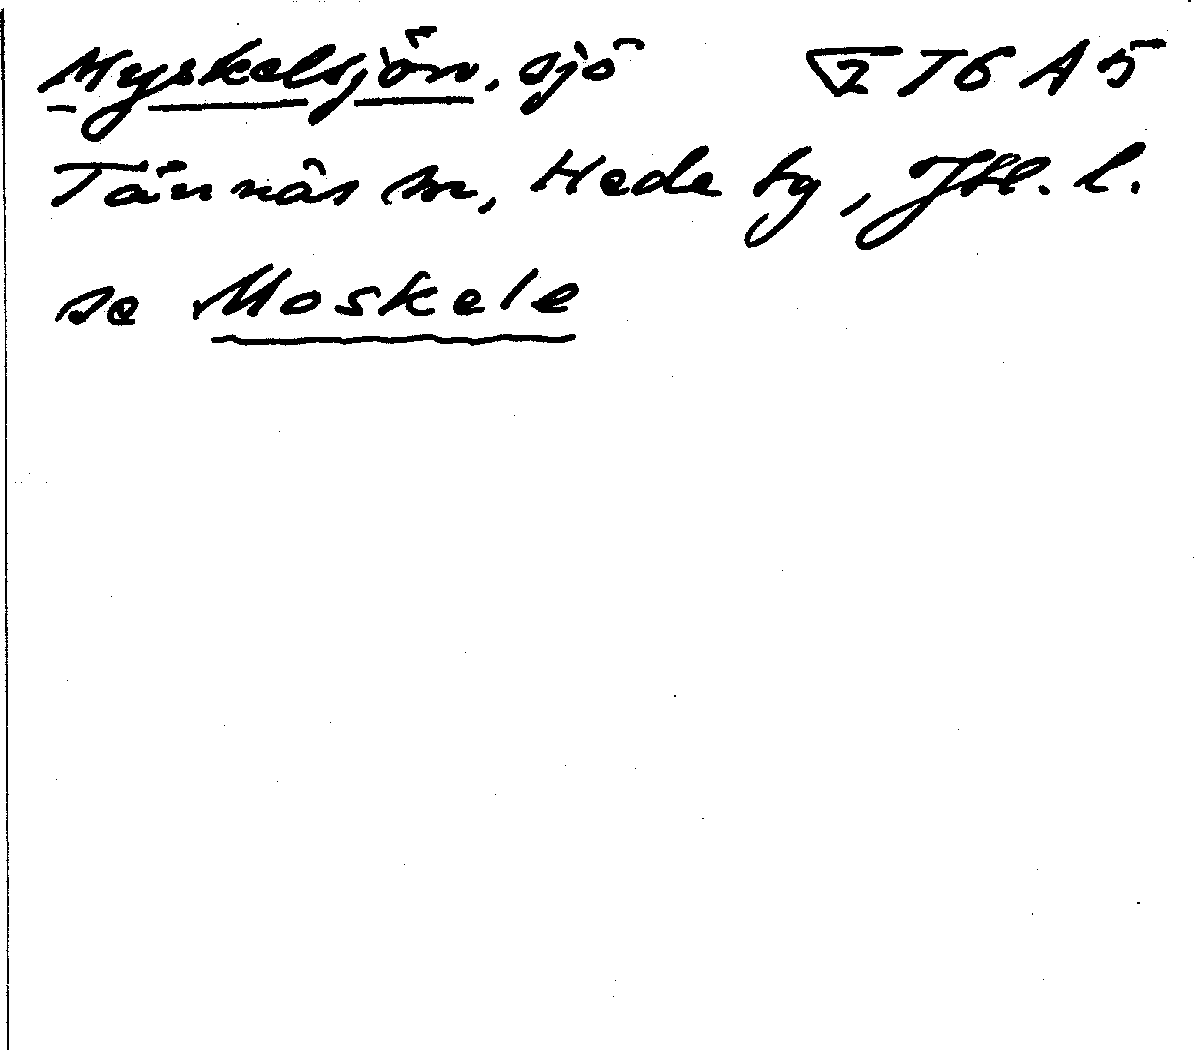 Myskelsjön, sjö 76 A 5
Tännäs sn, Hede tg, Jtl. l.
se Moskele